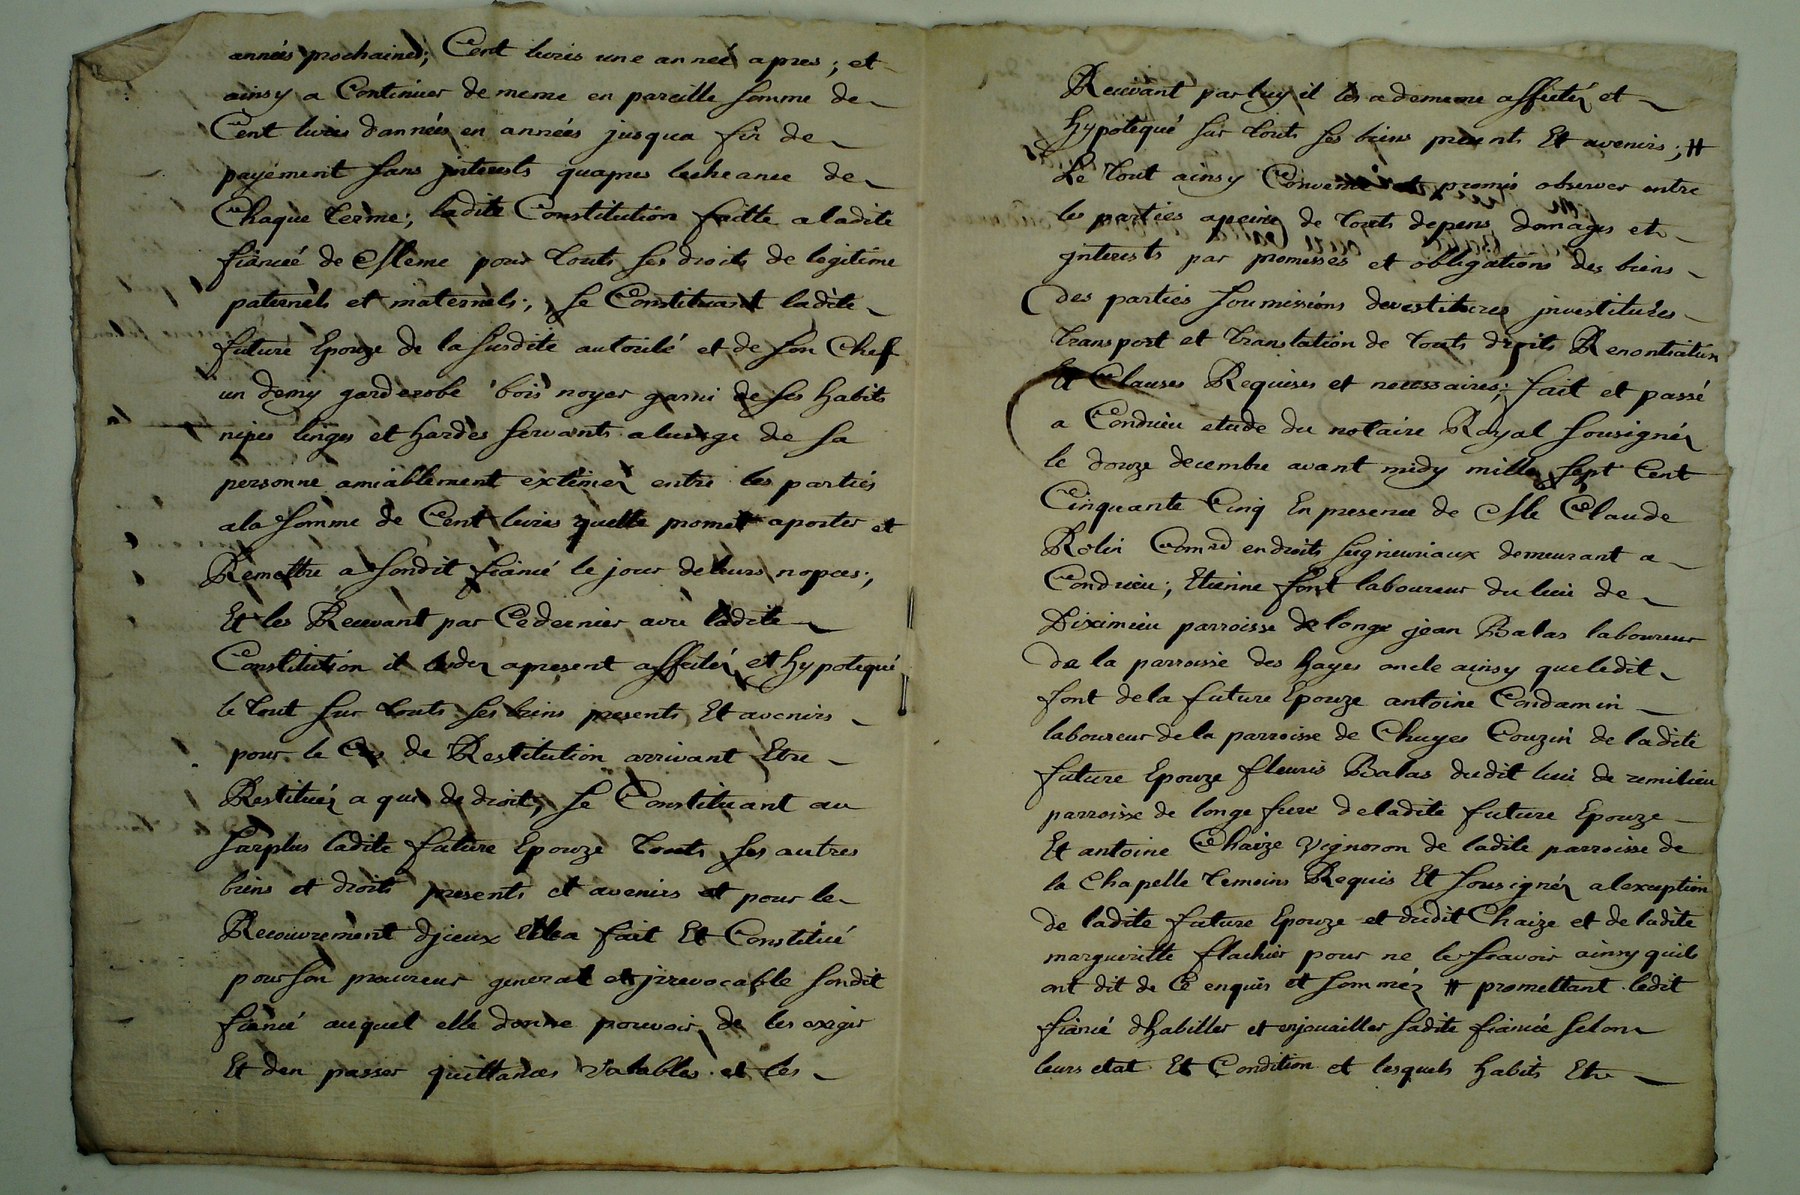 années prochaines; Cent livres une année apres; et
ainsy a Continuer de meme en pareille somme de
Cent livres dannées en années jusqua fin de
payement sans jnterests quapres lecheance de
Chaque terme; ladite Constitution faitte a ladite
fiancée de meme pour touts ses droits de legitime
paternels et maternels; Se Constituant ladite
future Epouze de la susdite autorité et de son Chef
un demy garderobe bois noyer garni de ses habits
nipes linges et hardes servants a lusage de sa
personne amiablement extimez entre les parties
a la somme de Cent livres quelle promet aporter et
Remettre a sondit fiancé le jour de leurs nopces;
Et les Recevant par Ce dernier avec ladite
Constitution il a des apresent affectéz et hypotequé
le tout sur touts ses biens presents Et avenirs
pour le Cas de Restitution arrivant Etre
Restituéz a qui de droit; Se Constituant au
surplus ladite future Epouze touts ses autres
biens et droits presents et avenirs et pour le
Recouvrement djceux Elle a fait Et Constitué
pour son procureur general et jrrevocable sondit
fiancé auquel elle donne pouvoir de les exiger
Et den passer quittances valables et les
Recevant par luy il les a dememe affectéz et
hypotequé sur touts ses biens presents Et avenirs; #
Le tout ainsy Convenu et promis observer entre
les parties a peine de touts depens domages et
jnterests par promesses et obligations des biens
des parties soumissions devestitures jnvestitures
transport et translation de touts droits Renontiation
Et Clauses Requises et necessaires; fait et passé
a Condrieu etude du notaire Royal sousignéz
le douze decembre avant midy mille sept Cent
Cinquante Cinq En presence de Me Claude
Rolin Comre en droits seigneuriaux demeurant a
Condrieu; Etienne font laboureur du lieu de
Diximieu parroisse de longe jean Balas laboureur
de la parroisse des hayes oncle ainsy que ledit
font de la future Epouze antoine Condamin
laboureur de la parroisse de Chuyes Couzin de ladite
future Epouze fleuris Balas dudit lieu de remilieu
parroisse de longe frere de ladite future Epouze
Et antoine Chaize vigneron de ladite parroisse de
la Chapelle temoins Requis Et sousignéz a lexception
de ladite future Epouze et dudit Chaize et de ladite
margueritte flachier pour ne le scavoir ainsy quils
ont dit de Ce enquis et sommèz # promettant ledit
fiancé dhabiller et enjouailler sadite fiancée selon
leurs etat Et Condition et lesquels habits Etre